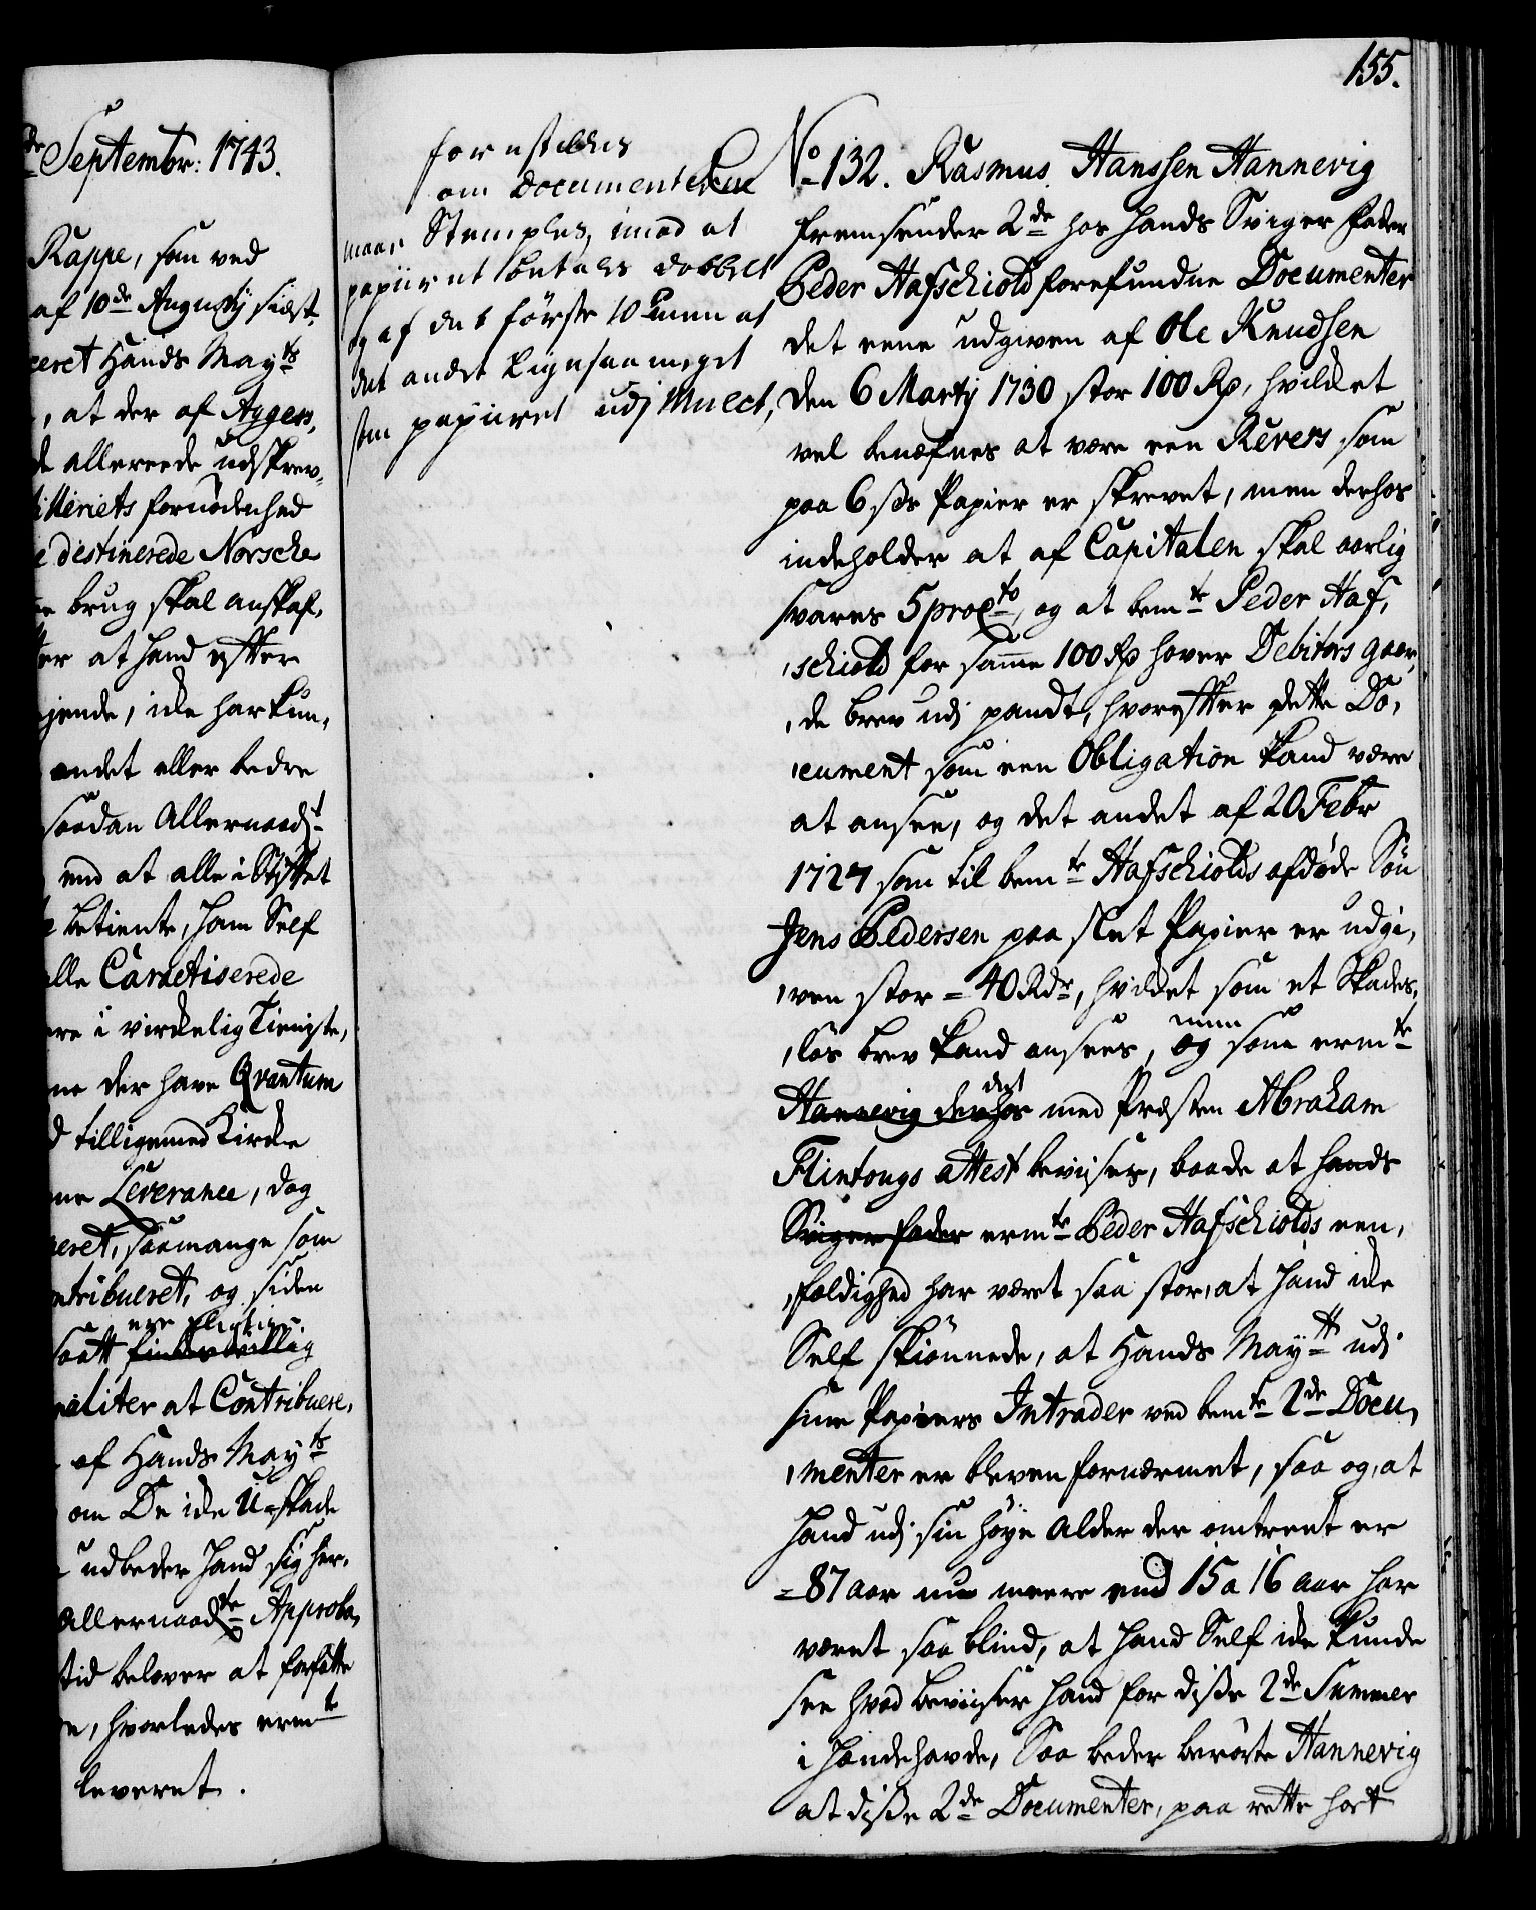 155.
de Septembr: 1743.
Rappe, som ved
af 10de Augusti sidst
ceret Hands Mayts
, at der af Aggers,
de allereede udskrev,
illeriets fornødenhed
e destinerede Norsche
brug skal anskaf,
ter at hand efter
jende, icke har kun,
andet eller bedre
saadan Allernaadst
end at alle i Stiftet
betiente, ham Self
alle Caractiserede
ere i virckelig Tieniste,
der have Qvantum
d tilligemed Kircke
ne Leverance, dog
eret, saamange som
ntribueret, og siden
ere pligtige
saatt findes villig
naliter at Contribuere,
af Hands Mayts
om De icke U-skade
udbeder hand sig her,
Allernaadste Approba,
tid belover at forfatte
, hvorledes ermte
leveret.
forestilles
om Documenterne
maae Stemples, imod at
papiiret betales dobbelt
og af det første 10 men at
det andet ligesaa meget
som papiiret udj Mulct,
No 132. Rasmus Hanssen Hannevig
fremsender 2de hos hands Sviger fader
Peder Hafschiold forefundne Documenter
det eene udgiven af Ole Knudsen
den 6 Martij 1730 stor 100 Rd, hvilcket
vel benæfnes at være een Revers som
paa 6 sds Papier er skrevet, men derhos
indeholder at af Capitalen skal aarlig
svares 5 procto, og at bemte Peder Haf,
,schiold for samme 100 Rd haver Debitors gaar,
,de brev udj pandt, hvorefter dette Do,
,cument som een Obligation kand være
at ansee, og det andet af 20 Febr
1727 som til bemte Hafschiolds afdøde Søn
Jens Pedersen paa slet Papier er udgi,
,ven stor = 40 Rdr, hvilcket som et Skades,
men
,løs brev kand ansees, og som ermte
det
Hannevig derhos med Præsten Abraham
Flintougs attest beviser, baade at hands
Sviger fader ermte Peder Hafschiolds een,
,foldighed har været saa stor, at hand icke
Self skiønnede, at Hands Maytt udi
sine Papiers Intrader ved bemte 2de Docu,
,menter er bleven fornærmet, saa og, at
hand udj sin høye alder der omtrent er
= 87 aar nu meere end 15 a 16 aar har
været saa blind, at hand Self icke kunde
see hvad beviiser hand for disse 2de Summer
i hænde havde, Saa beder berørte Hannevig
at disse 2de Documenter, paa rette sort